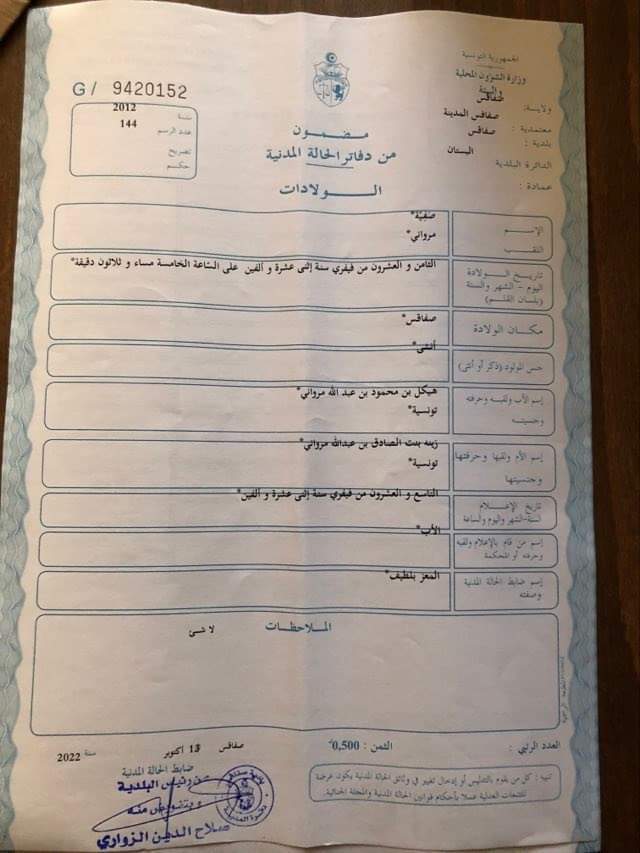 الجمهورية التونسية
وزارة الشؤون المحلية
والبيئة
ولاية: صفاقس
معتمدية : صفاقس المدينة
بلدية : صفاقس
الدائرة البلدية البستان
عمادة :
G / 9420152
سنة 2012
عدد الرسم 144
تصريح
حكم
مضمون
من دفاتر الحالة المدنية
الولادات
الإسم صفيّة*
اللقب مرواني*
تاريخ الولادة
اليوم - الشهر والسنة
(بلسان القلم)
الثامن و العشرون من فيفري سنة إثنى عشرة و ألفين على الساعة الخامسة مساء و ثلاثون دقيقة*
مكان الولادة صفاقس*
جنس المولود (ذكر أو أنثى) أنثى*
إسم الأب ولقبه وحرفته هيكل بن محمود بن عبد الله مرواني*
وجنسيته تونسية*
إسم الأم ولقبها وحرفتها زينه بنت الصادق بن عبدالله مرواني*
وجنسيتها تونسية*
تاريخ الإعلام
لسنة-الشهر واليوم والساعة
التاسع و العشرون من فيفري سنة إثنى عشرة و ألفين*
إسم من قام بالإعلام ولقبه
وحرفته أو المحكمة
الأب*
إسم ضابط الحالة المدنية
وصفته
المعز بلطيف*
الملاحظات
لا شئ
العدد الرتبي : الثمن : 0,500
صفاقس 13 أكتوبر سنة 2022
تنبيه : كل من يقوم بالتدليس أو إدخال تغيير في وثائق الحالة المدنية يكون عرضة
للتتبعات العدلية عملا بأحكام قوانين الحالة المدنية والمجلة الجنائية.
ضابط الحالة المدنية
عن رئيس البلدية
و بتفويض منه
صلاح الدين الزواري